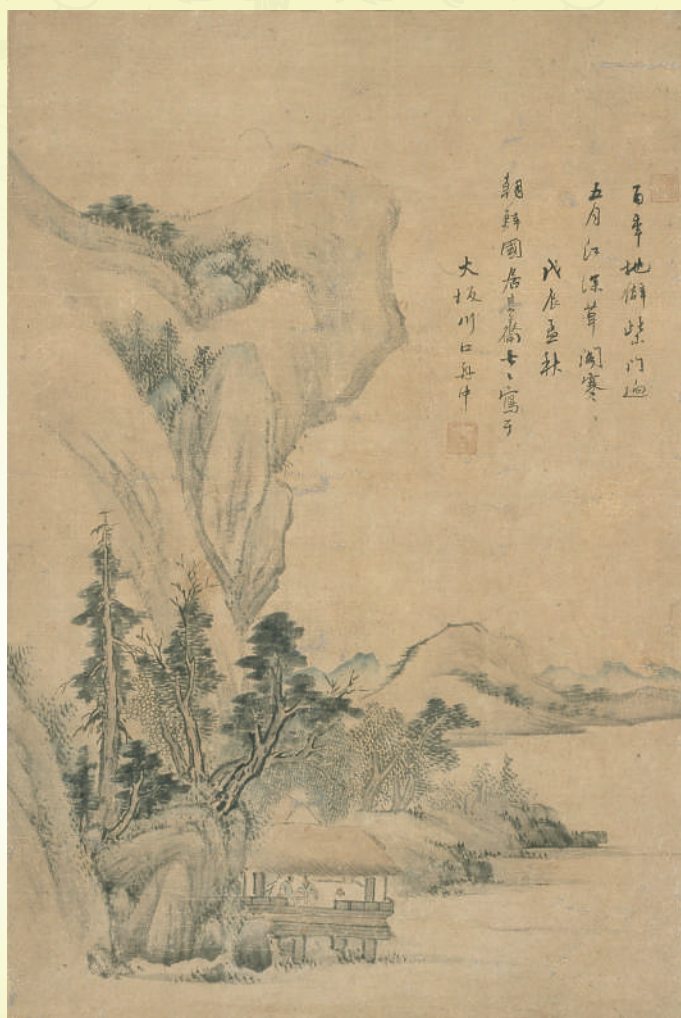 百年地僻柴門迥
五月江深草閣寒
戊辰孟秋
朝鮮國居其齋七々寫于
大坂川口舟中